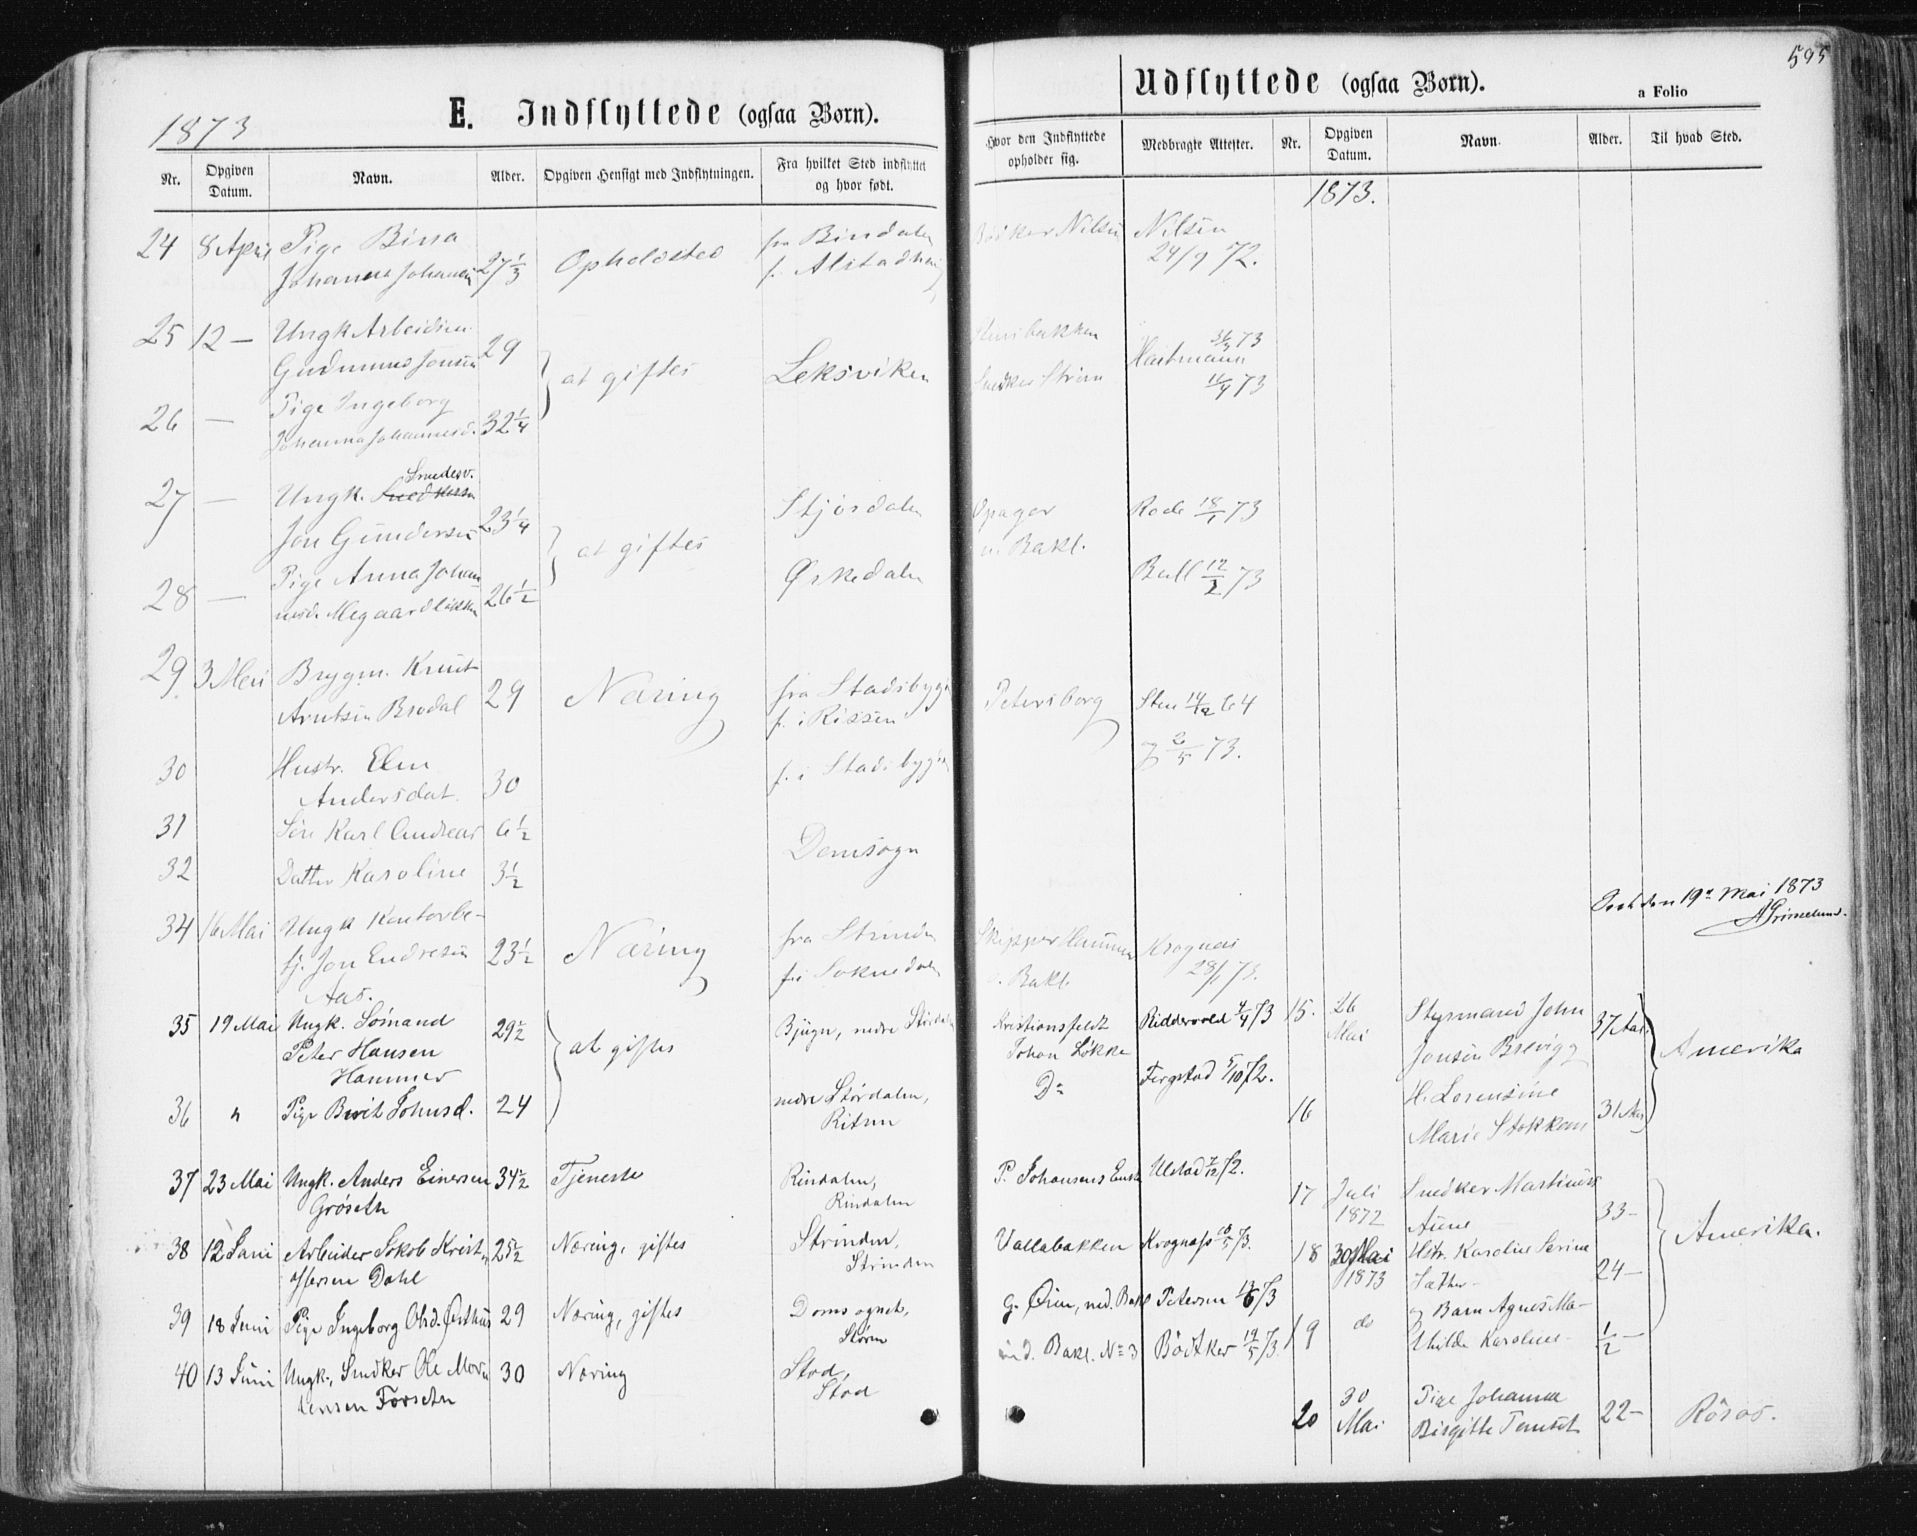 595
1873
E. Indflyttede (ogsaa Børn).
Udflyttede (ogsaa Børn).
a Folio
Nr.
Opgiven
Datum.
Navn.
Alder.
Opgiven Hensigt med Indflytningen.
Fra hvilket Sted indflyttet
og hvor født.
Hvor den Indflyttede
opholder sig.
Medbragte Attester.
Nr.
Opgiven
Datum.
Navn.
Alder.
Til hvad Sted.
1873.
24 8 April Pige Birra 27 1/3 Opholdsted fra Bindalen Bödker Nilsen Nilsen
Johanna f. Alstadhaug 24/9 72.
25 12 — Ungk Arbeidsm. 29 at giftes Leksviken 31/3 73
Gudmund Jonsen Hartmann
26 — Pige Ingeborg 32 1/4 Snedker Ström 16/4 73
Johanna Johannesd.
27 — Ungk. Snedkersv. Smedesv. 23 1/4 at giftes Stjørdalen Rode 18/1 73
Jon Gundersen n. Bakl.
28 — Pige Anna Johan 26 1/2 Ørkedalen Bull 12/2 73
nesd. Megaardløkken
29. 3 Mai Brygm. Knut 29 Næring fra Stadsbygd Petersborg Sten 14/12 64
Arntsen Brødal f. i Rissen og 2/5 73.
30 Hustr. Elen 30 f. i Stadsbygd
Andersdat.
31 Sön Karl Andreas 6 1/2 Domsogn
32 Datter Karoline 3 1/2
34 16 Mai Ungk Kontorbe- 23 1/2 Næring fra Strinden Skipper Hammer Krognæs
tj. Jon Endresen f. i Soknedalen n. Bakl. 28/1 73.
Aas.
35 19 Mai Ungk. Sömand 29 1/2 at giftes Bjugn, nedre Stördalen Kristiansfeldt Riddervold 4/4 73
Peter Hansen Johan Lökke
Hammer
36 " Pige Berit Johnsd. 24 nedre Stördalen, Do Fergstad 5/10 72.
Ritun
37 23 Mai Ungk. Anders Einersen 34 1/2 Tjeneste Rindalen, P. Johansens Enke Ulstad 7/12 72.
Gröseth Rindalen
38 12 Juni Arbeider Jakob Krist, 25 1/2 Næring, giftes Strinden, Vallabakken Krognæss 18/5 73.
offersen Dahl Strinden
39 18 Juni Pige Ingeborg Olsd. 29 Næring, giftes Domsognet, G. Öien, ned. Bakl Petersen 13/6 73
Stören
40 13 Juni Ungk., Snedker Ole Mor 30 Næring Stod, ned. Bakl. No 3 Bödtker 19/5 73.
tensen Forseth Stod
Seet den 19de Mai 1873
A Grimelund.
15. 26 Mai Styrmand John 37 Aar
Jonsen Brevigg
16 H. Lorensine 31 Aar Amerika
Marie Stokkan
17 Juli 1872 Snedker Martinus 33 —
Aune
18 30 Mai 1873 Hstr. Karoline Serine 24 — Amerika.
Sæther —
19 do og Barn Agnes Ma- 1/2 —
thilde Karoline —
20 30 Mai Pige Johanna 22 — Röros.
Birgitte Tamset